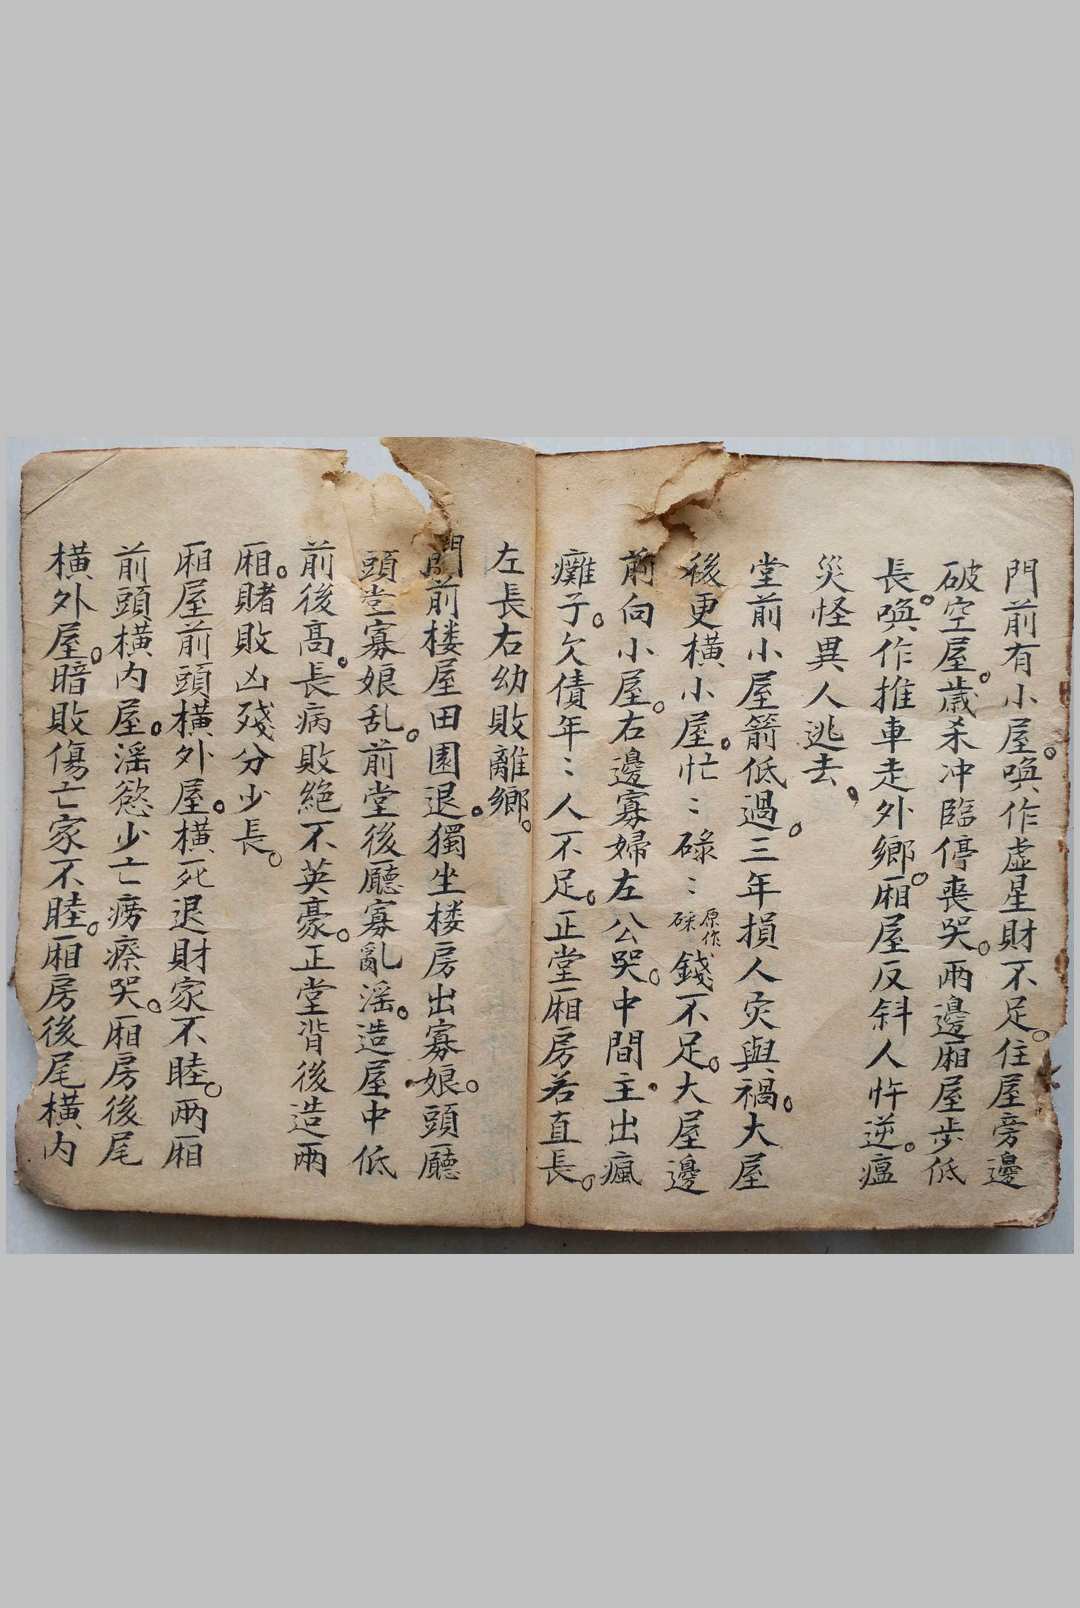 門前有小屋。喚作虛星財不足。住屋旁邊
破空屋。歲杀冲臨停喪哭。兩邊廂屋步低
長。喚作推車走外鄉。廂屋反斜人忤逆。瘟
災怪異人逃去。
堂前小屋箭低過。三年損人灾與禍。大屋
後更橫小屋。忙〻碌〻原作碌錢不足。大屋邊
前向小屋。右邊寡婦左公哭。中間主出瘋
癱子。欠債年〻人不足。正堂廂房若直長。
左長右幼敗離鄉。
門前楼屋田園退。獨坐楼房出寡娘。頭廳
頭堂寡娘乱。前堂後廳寡亂滛。造屋中低
前後高。長病敗絕不英豪。正堂背後造兩
廂。賭敗凶殘分少長。
廂屋前頭橫外屋。橫死退財家不睦。兩廂
前頭橫内屋。滛慾少亡痨瘵哭。廂房後尾
橫外屋。暗敗傷亡家不睦。廂房後尾橫内